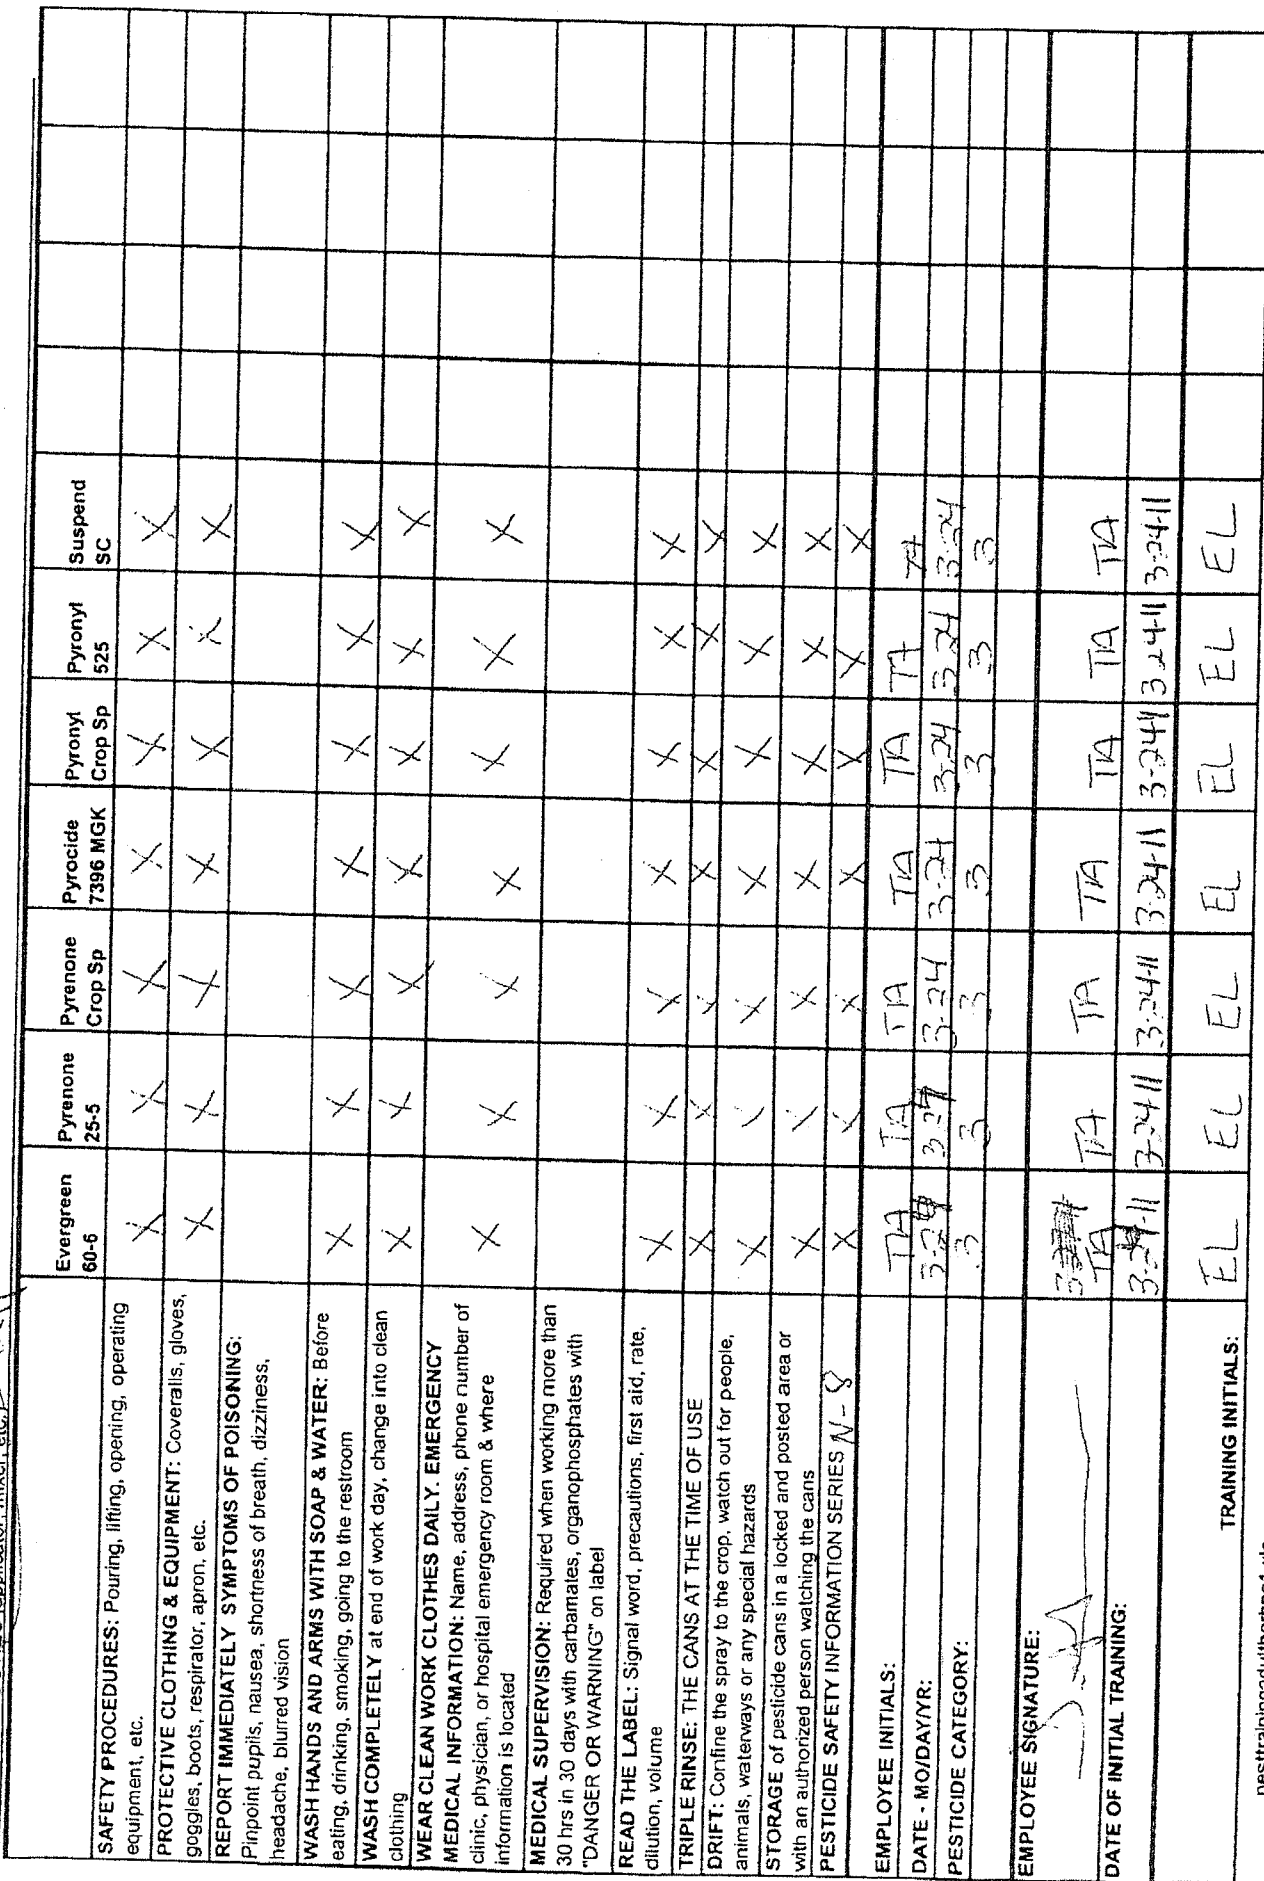 Evergreen 60-6 Pyrenone 25-5 Pyrenone Crop Sp Pyrocide 7396 MGK Pyronyl Crop Sp Pyronyl 525 Suspend SC
SAFETY PROCEDURES: Pouring, lifting, opening, operating
equipment, etc.
X X X X X X X
PROTECTIVE CLOTHING & EQUIPMENT: Coveralls, gloves,
goggles, boots, respirator, apron, etc.
X X X X X X X
REPORT IMMEDIATELY SYMPTOMS OF POISONING:
Pinpoint pupils, nausea, shortness of breath, dizziness,
headache, blurred vision
WASH HANDS AND ARMS WITH SOAP & WATER: Before
eating, drinking, smoking, going to the restroom
X X X X X X X
WASH COMPLETELY at end of work day, change into clean
clothing
X X X X X X X
WEAR CLEAN WORK CLOTHES DAILY. EMERGENCY
MEDICAL INFORMATION: Name, address, phone number of
clinic, physician, or hospital emergency room & where
information is located
X X X X X X X
MEDICAL SUPERVISION: Required when working more than
30 hrs in 30 days with carbamates, organophosphates with
"DANGER OR WARNING" on label
READ THE LABEL: Signal word, precautions, first aid, rate,
dilution, volume
X X X X X X X
TRIPLE RINSE: THE CANS AT THE TIME OF USE
X X X X X X X
DRIFT: Confine the spray to the crop, watch out for people,
animals, waterways or any special hazards
X X X X X X X
STORAGE of pesticide cans in a locked and posted area or
with an authorized person watching the cans
X X X X X X X
PESTICIDE SAFETY INFORMATION SERIES N-8
X X X X X X X
EMPLOYEE INITIALS: TA TA TA TA TA TA TA
DATE - MO/DAY/YR: 3-24 3-24 3-24 3-24 3-24 3-24 3-24
PESTICIDE CATEGORY: 3 3 3 3 3 3 3
EMPLOYEE SIGNATURE: TA TA TA TA TA TA TA
DATE OF INITIAL TRAINING: 3-24-11 3-24-11 3-24-11 3-24-11 3-24-11 3-24-11 3-24-11
TRAINING INITIALS: EL EL EL EL EL EL EL